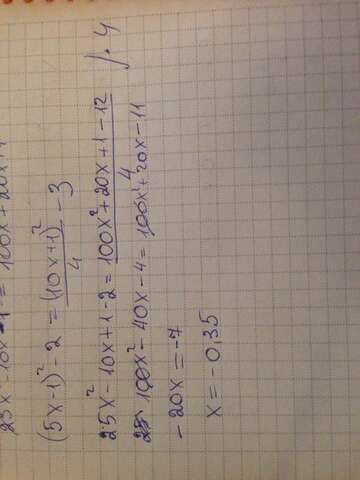 25x² - 10x + 1 = 100x + 20x + 1
(5x-1)² - 2 = (10x+1)²/4 - 3
25x² - 10x + 1 - 2 = 100x² + 20x + 1 - 12 / 4 /·4
100x² - 40x - 4 = 100x² + 20x - 11
-20x = -7
x = -0,35